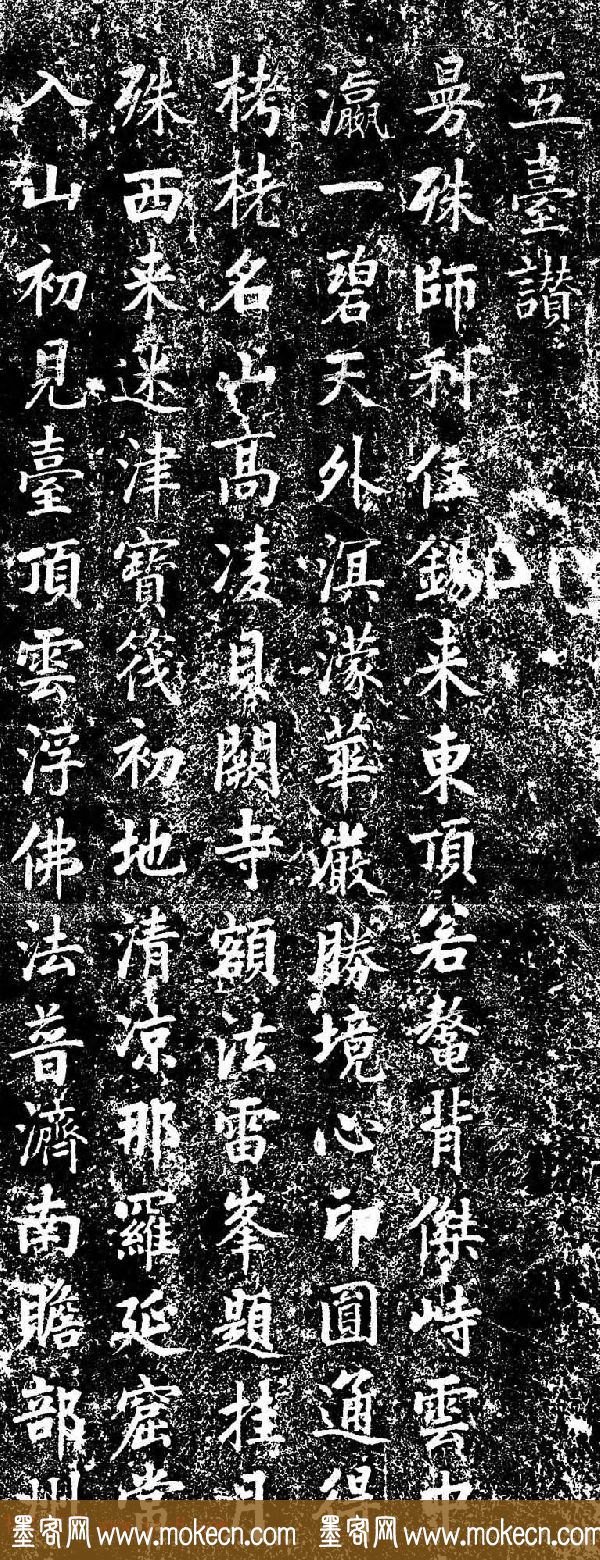 五臺讃
曼殊師利住錫来東頂若鼇背傑峙雲中
瀛一碧天外溟濛華嚴勝境心印圓通得
栲栳名山高凌貝闕寺額法雷峯題挂月
殊西来迷津寶筏初地清凉那羅延窟常
入山初見臺頂雲浮佛法普濟南贍部州
墨客网 www.mokecn.com 墨客网 www.mokecn.com